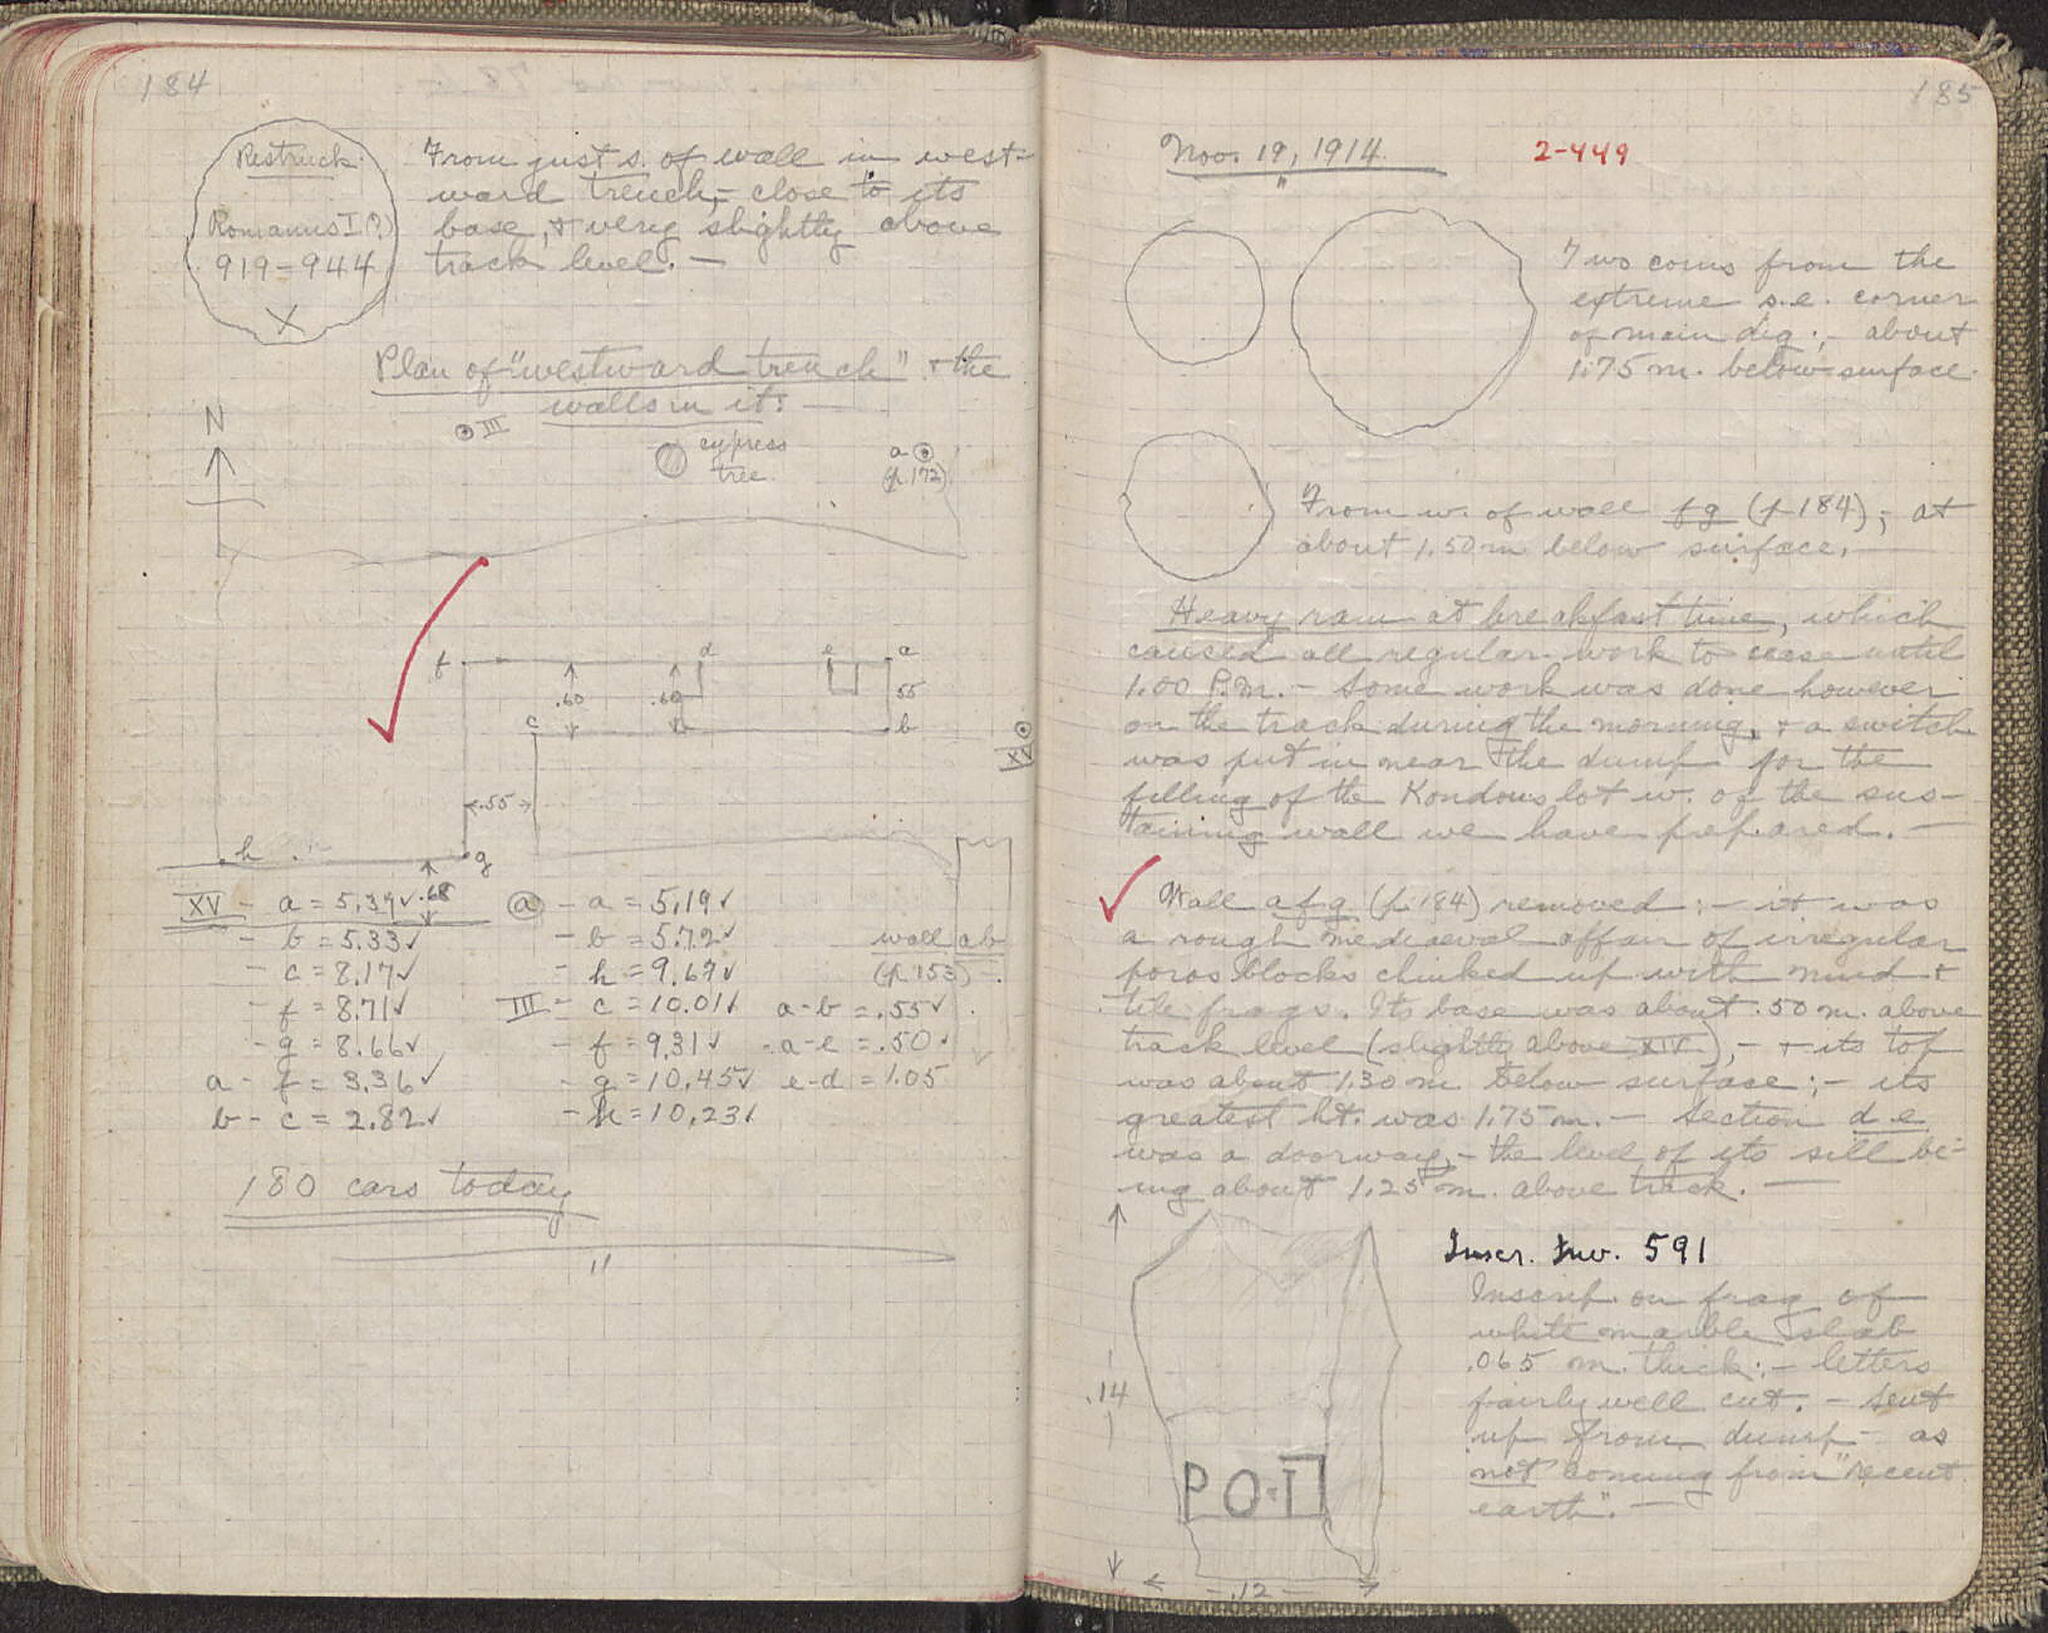 184
Restruck
Romanus I (?)
919-944
X
From just s. of wall in west-
ward trench, - close to its
base, & very slightly above
track level. -
Plan of "westward trench" & the
walls in it: -
N
III
cypress
tree
a
(p. 172)
f
d
e
a
.60
.60
.55
c
b
XV
.55
h
g
.68
XV - a = 5.39 ✓
- b = 5.33 ✓
- c = 8.17 ✓
- f = 8.71 ✓
- g = 8.66 ✓
a - f = 3.36 ✓
b - c = 2.82 ✓
a - a = 5.19 ✓
- b = 5.72 ✓
- h = 9.67 ✓
III - c = 10.01 ✓
- f = 9.31 ✓
- g = 10.45 ✓
- h = 10.23 ✓
wall ab
(p. 153) -
a-b = .55 ✓
a-e = .50
e-d = 1.05
180 cars today
185
Nov. 19, 1914.
2-449
Two coins from the
extreme s.e. corner
of main dig; - about
1.75 m. below surface.
From w. of wall fg (p 184); at
about 1.50 m below surface. -
Heavy rain at breakfast time, which
caused all regular work to cease until
1.00 P.M. - Some work was done however
on the track during the morning, & a switch
was put in near the dump for the
filling of the Kondous lot w. of the sus-
taining wall we have prepared. -
Wall afg (p. 184) removed: - it was
a rough mediaeval affair of irregular
poros blocks chinked up with mud &
tile frags. Its base was about .50 m. above
track level (slightly above XIV), - & its top
was about 1.30 m. below surface; - its
greatest ht. was 1.75 m. - Section d e
was a doorway, - the level of its sill be-
ing about 1.25 m. above track. -
Inscr. Inv. 591
Inscrip. on frag of
white marble slab
.065 m. thick: - letters
fairly well cut. - Sent
up from dump - as
not coming from "recent
earth". -
.14
.12